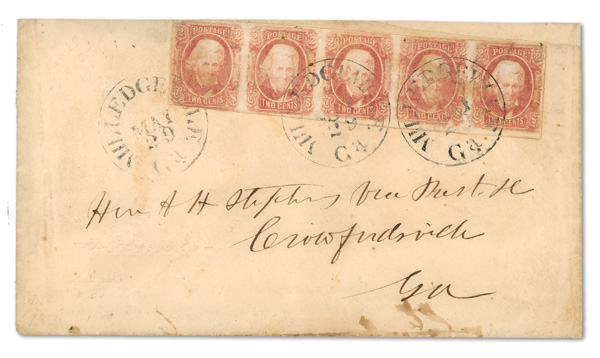 POSTAGE POSTAGE POSTAGE POSTAGE POSTAGE
TWO CENTS TWO CENTS TWO CENTS TWO CENTS TWO CENTS
MILLEDGEVILLE
MAY
29
Ga
MILLEDGEVILLE
29
Ga
MILLEDGEVILLE
Ga.
Hon A H Stephens Vice Prest
Crawfordsville
Ga